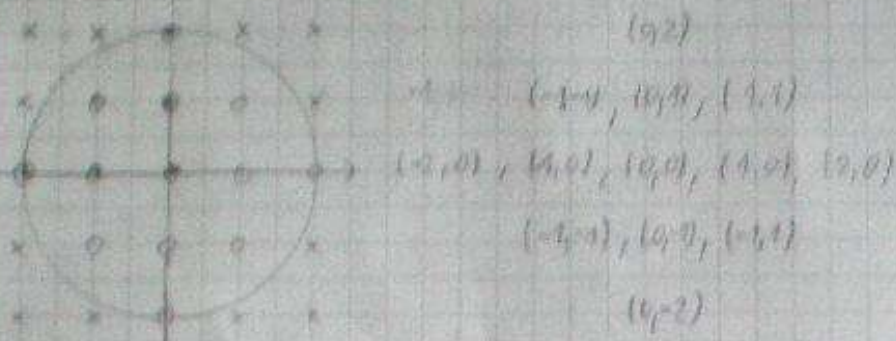 (0,2)
(-1,1), (0,1), (1,1)
(-2,0), (1,0), (0,0), (1,0), (2,0)
(-1,-1), (0,-1), (-1,1)
(0,-2)